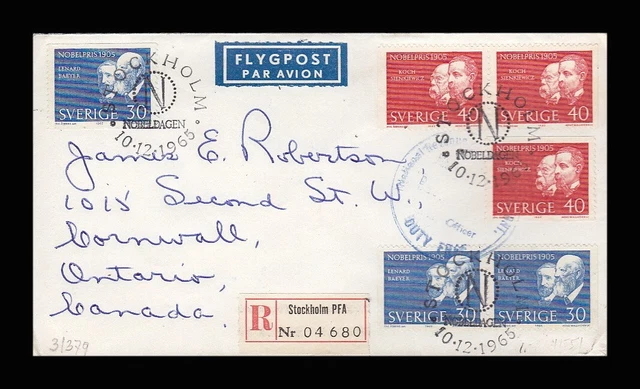 NOBELPRIS 1905
LENARD
BAEYER
SVERIGE 30
STOCKHOLM
N
NOBELDAGEN
10.12.1965
FLYGPOST
PAR AVION
NOBELPRIS 1905
KOCH
SIENKIEWICZ
SVERIGE 40
NOBELPRIS 1905
KOCH
SIENKIEWICZ
SVERIGE 40
STOCKHOLM
N
NOBELDAGEN
10.12.1965
NOBELPRIS 1905
KOCH
SIENKIEWICZ
SVERIGE 40
James E. Robertson,
1015 Second St. W.,
Cornwall,
Ontario,
Canada.
Officer
DUTY FREE
NOBELPRIS 1905
LENARD
BAEYER
SVERIGE
NOBELPRIS 1905
LENARD
BAEYER
SVERIGE 30
N
NOBELDAGEN
10.12.1965
R
Stockholm PFA
Nr 04680
3/379